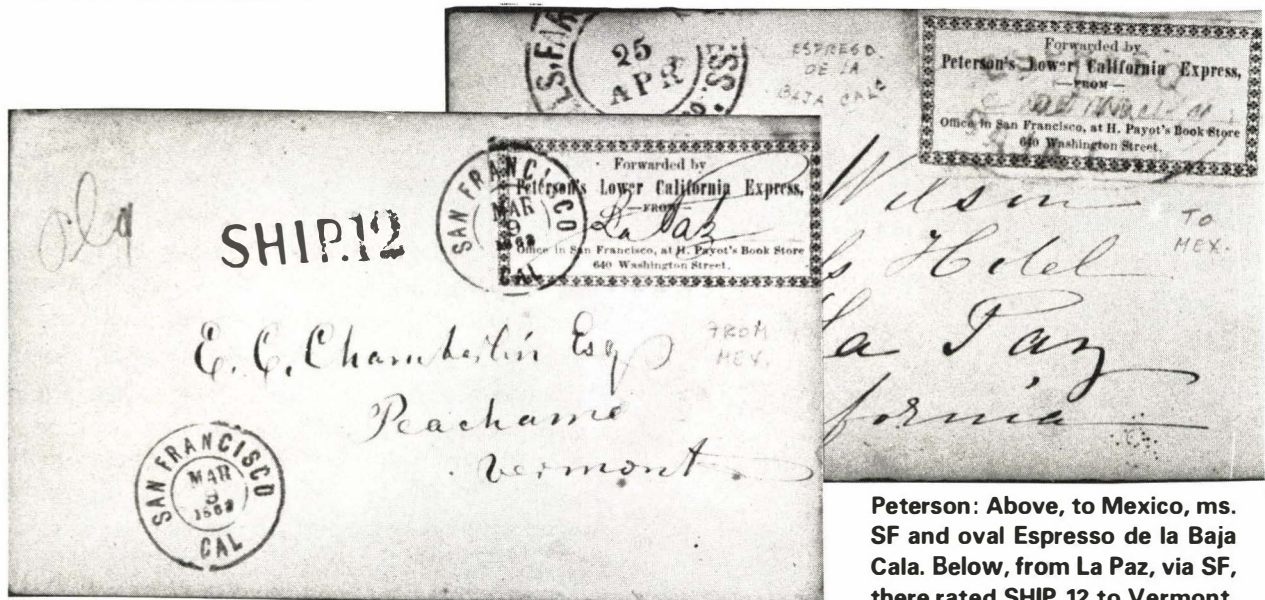 LS, FAR
25
APR
SS.
ESPRESO.
DE LA
BAJA CALA
Forwarded by
Peterson's Lower California Express,
—FROM—
Office in San Francisco, at H. Payot's Book Store
640 Washington Street.
Wilson
ls Hotel
La Paz
fornia
TO
MEX.
SHIP.12
SAN FRANCISCO
MAR
9
CAL
Forwarded by
Peterson's Lower California Express,
—FROM—
La Paz
Office in San Francisco, at H. Payot's Book Store
640 Washington Street.
E. C. Chamberlin Esq
FROM
MEX.
Peacham
Vermont
SAN FRANCISCO
MAR
CAL
Peterson: Above, to Mexico, ms.
SF and oval Espresso de la Baja
Cala. Below, from La Paz, via SF,
there rated SHIP. 12 to Vermont.